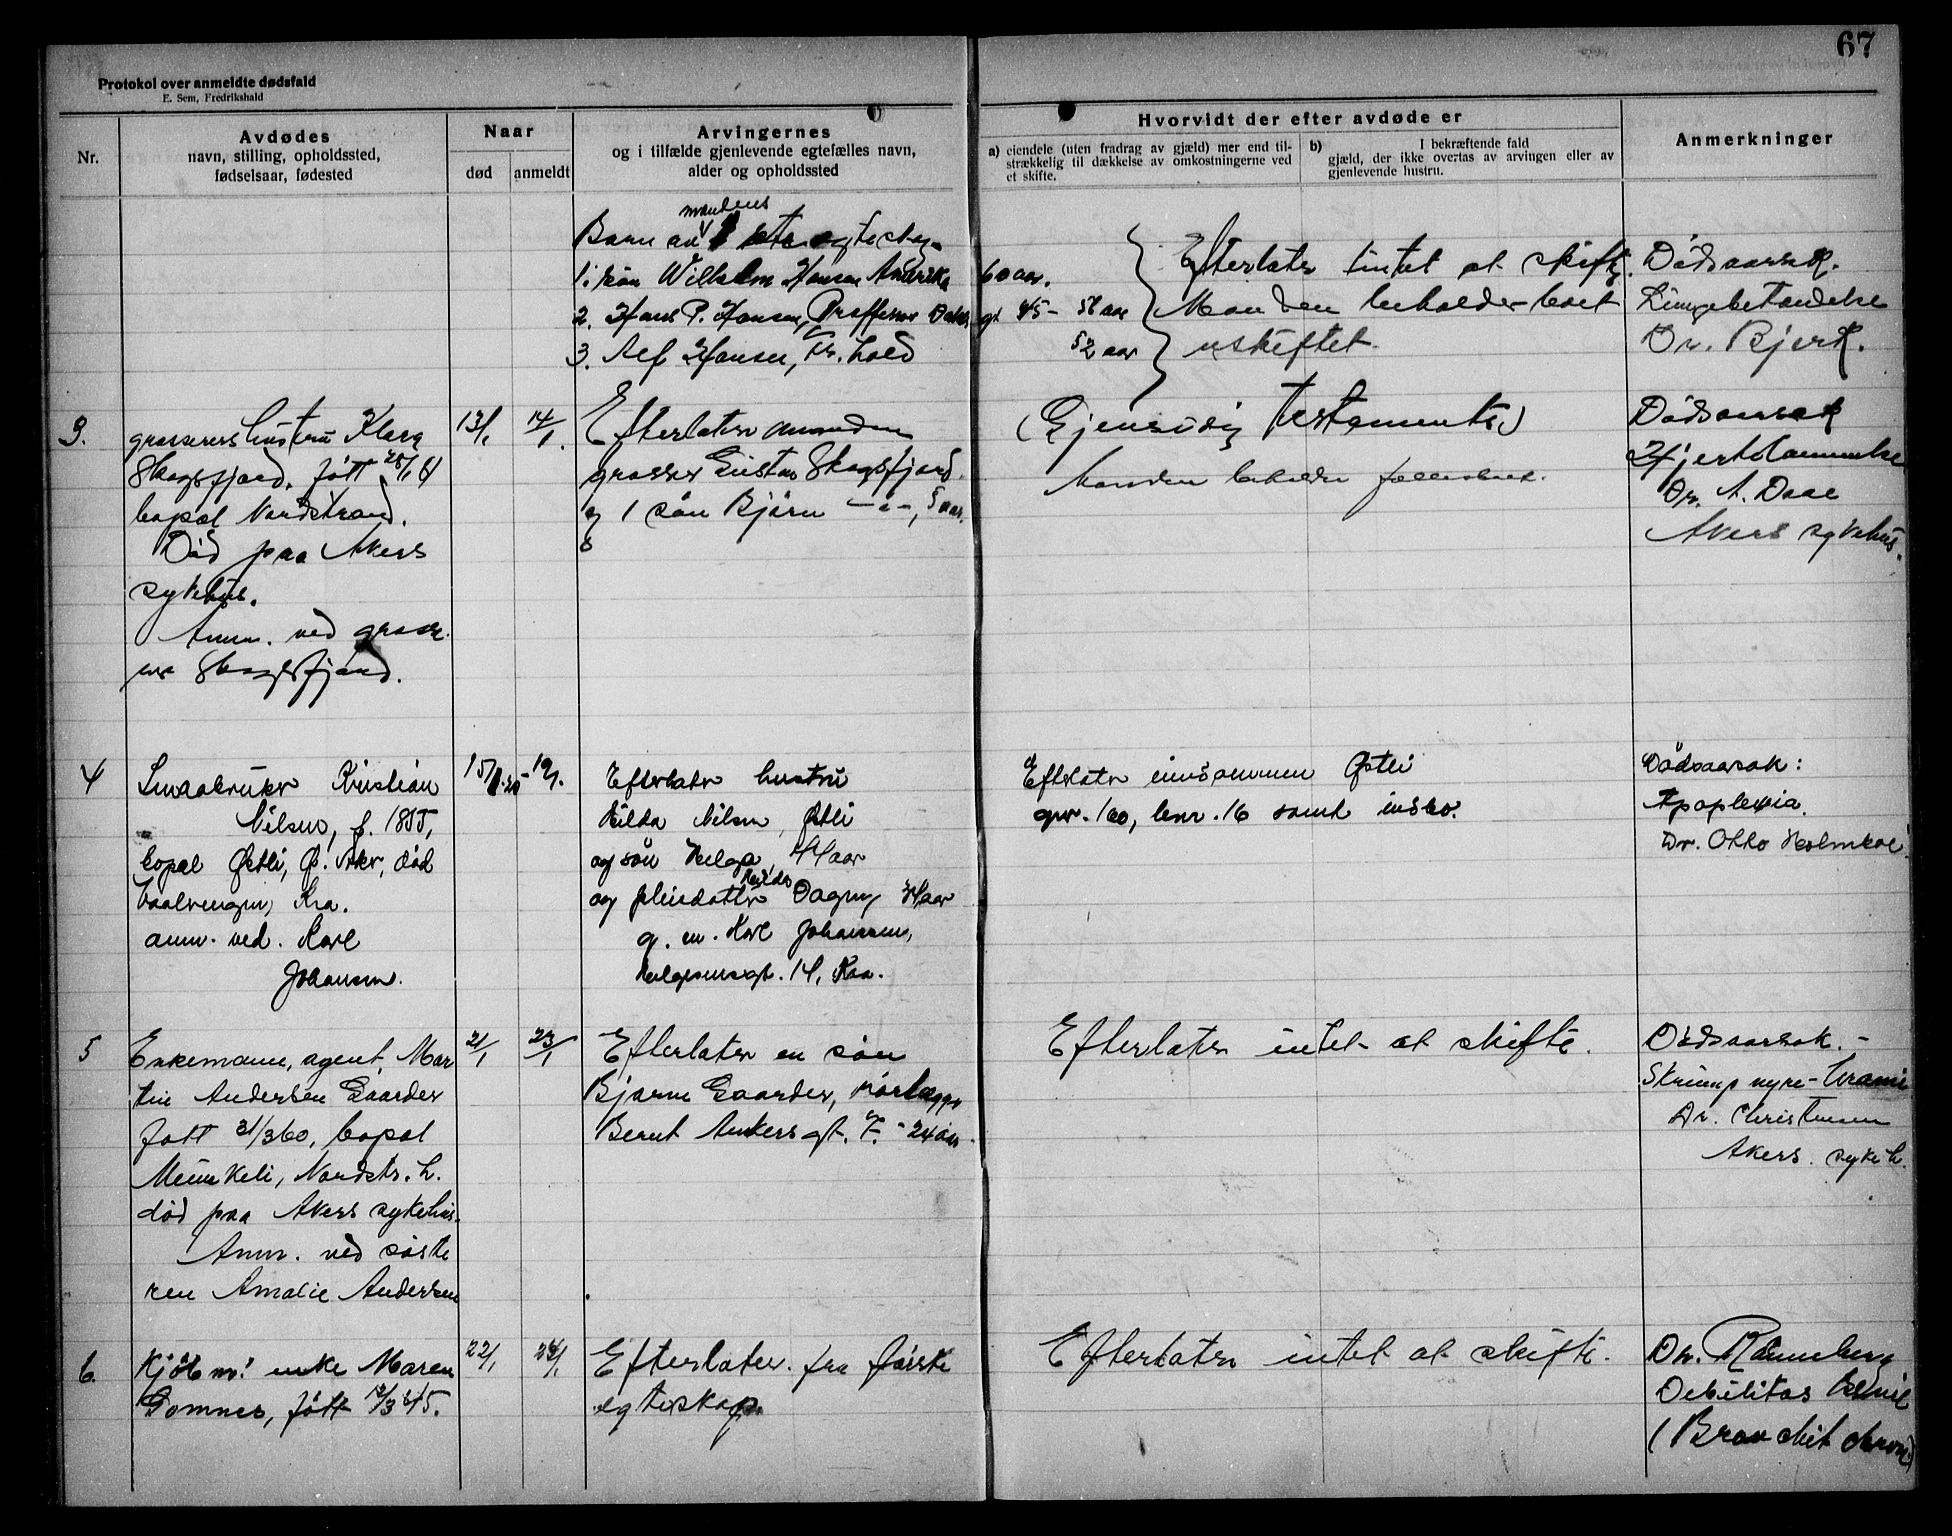 67
Protokol over anmeldte dødsfald
E. Sem, Fredrikshald
Nr.
Avdødes
navn, stilling, opholdssted,
fødselsaar, fødested
Naar
død
anmeldt
Arvingernes
og i tilfælde gjenlevende egtefælles navn,
alder og opholdssted
Hvorvidt der efter avdøde er
a) eiendele (uten fradrag av gjæld) mer end til-
strækkelig til dækkelse av omkostningerne ved
et skifte.
b) I bekræftende fald
gjæld, der ikke overtas av arvingen eller av
gjenlevende hustru.
Anmerkninger
mandens
Barn av
1. søn Wilhelm Hansen Amerika 60 aar.
2. Hans P. Hansen, 45 - 56 aar
3. Alf Hansen, 52 aar
Efterlater intet at skifte.
Manden beholder boet
uskiftet.
Dødsaarsak.
Lungebetændelse
Dr. Bjerk.
3.
grosserers hustru Klara
Skogsfjord. født
bopæl Nordstrand.
Død paa Akers
sykehus.
Anm. ved gross
Skogsfjord.
13/1
14/1.
Efterlater manden
grosser Gustav Skogsfjord
og 1 søn Bjørn -"-, 5 aar.
(Gjensidig Testamente)
Manden beholder
Dødsaarsak
Hjertelammelse
Dr. A. Daae
Akers sykehus.
4
Smaabruker Kristian
Nilsen, f. 1855,
bopæl Østli, Ø. Aker, død
Vaalerengen, Kra.
anm. ved. Karl
Johansen.
15/1
19/1.
Efterlater hustru
Hilda Nilsen, Østli
og søn Helge, 44 aar
og pleiedatter Dagny aar
g. m. Karl Johansen,
Helgesensgt. 14, Kra.
Efterlater eiendommen Østli
gnr. 160, bnr. 16 samt indbo.
Dødsaarsak:
Apoplexia.
Dr. Otto
5
Enkemann, agent, Mar
tin Andersen Gaarder
født 31/3 60, bopæl
Munkeli, Nordstr. h.
død paa Akers sykehus.
Anm. ved søste
ren Amalie Andersen
21/1
23/1
Efterlater en søn
Bjarne Gaarder, rørlægger
Bernt Ankers gt. 7. - 24 aar.
Efterlater intet at skifte.
Dødsaarsak. -
Skrumpnyre - Urami
Dr. Christensen
Akers. sykeh.
6.
Kjøbm. enke Maren
Gomnes, født 12/3 45.
22/1
24/1
Efterlater. fra første
egteskap.
Efterlater intet at skifte.
Dr. Rønneberg
Debilitas senil
(Bronchit chron.)